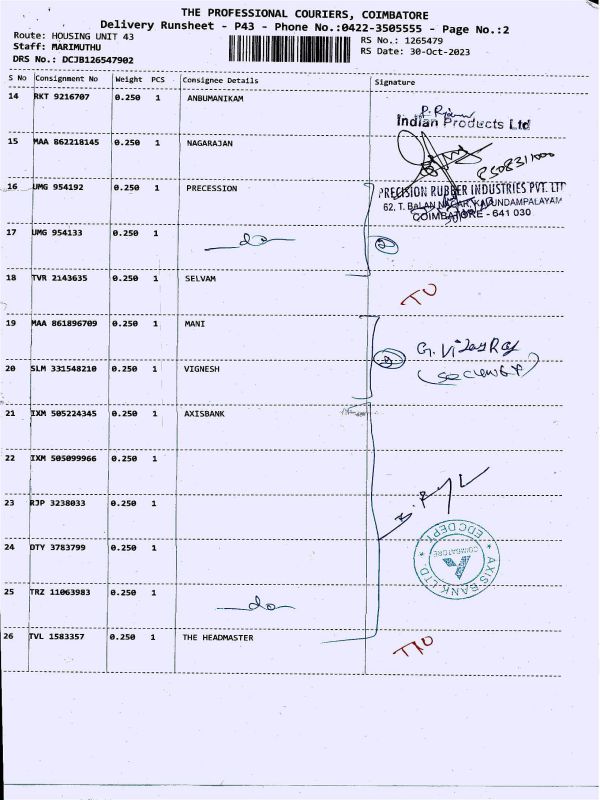 THE PROFESSIONAL COURIERS, COIMBATORE
Delivery Runsheet - P43 - Phone No.:0422-3505555 - Page No.:2
Route: HOUSING UNIT 43 RS No.: 1265479
Staff: MARIMUTHU RS Date: 30-Oct-2023
DRS No.: DCJB126547902
S No Consignment No Weight PCS Consignee Details Signature
14 RKT 9216707 0.250 1 ANBUMANIKAM
Indian Products Ltd
15 MAA 862218145 0.250 1 NAGARAJAN
8508311000
16 UMG 954192 0.250 1 PRECESSION
PRECISION RUBBER INDUSTRIES PVT. LTD
62, T. BALAN NAGAR, KAVUNDAMPALAYAM
COIMBATORE - 641 030
17 UMG 954133 0.250 1 do 2
18 TVR 2143635 0.250 1 SELVAM
19 MAA 861896709 0.250 1 MANI
G. Vijay Raj
20 SLM 331548210 0.250 1 VIGNESH
(Security)
21 IXM 505224345 0.250 1 AXISBANK
22 IXM 505099966 0.250 1
23 RJP 3238033 0.250 1
24 DTY 3783799 0.250 1
AXIS BANK LTD. EDC DEPT.
COIMBATORE
25 TRZ 11063983 0.250 1 do
26 TVL 1583357 0.250 1 THE HEADMASTER